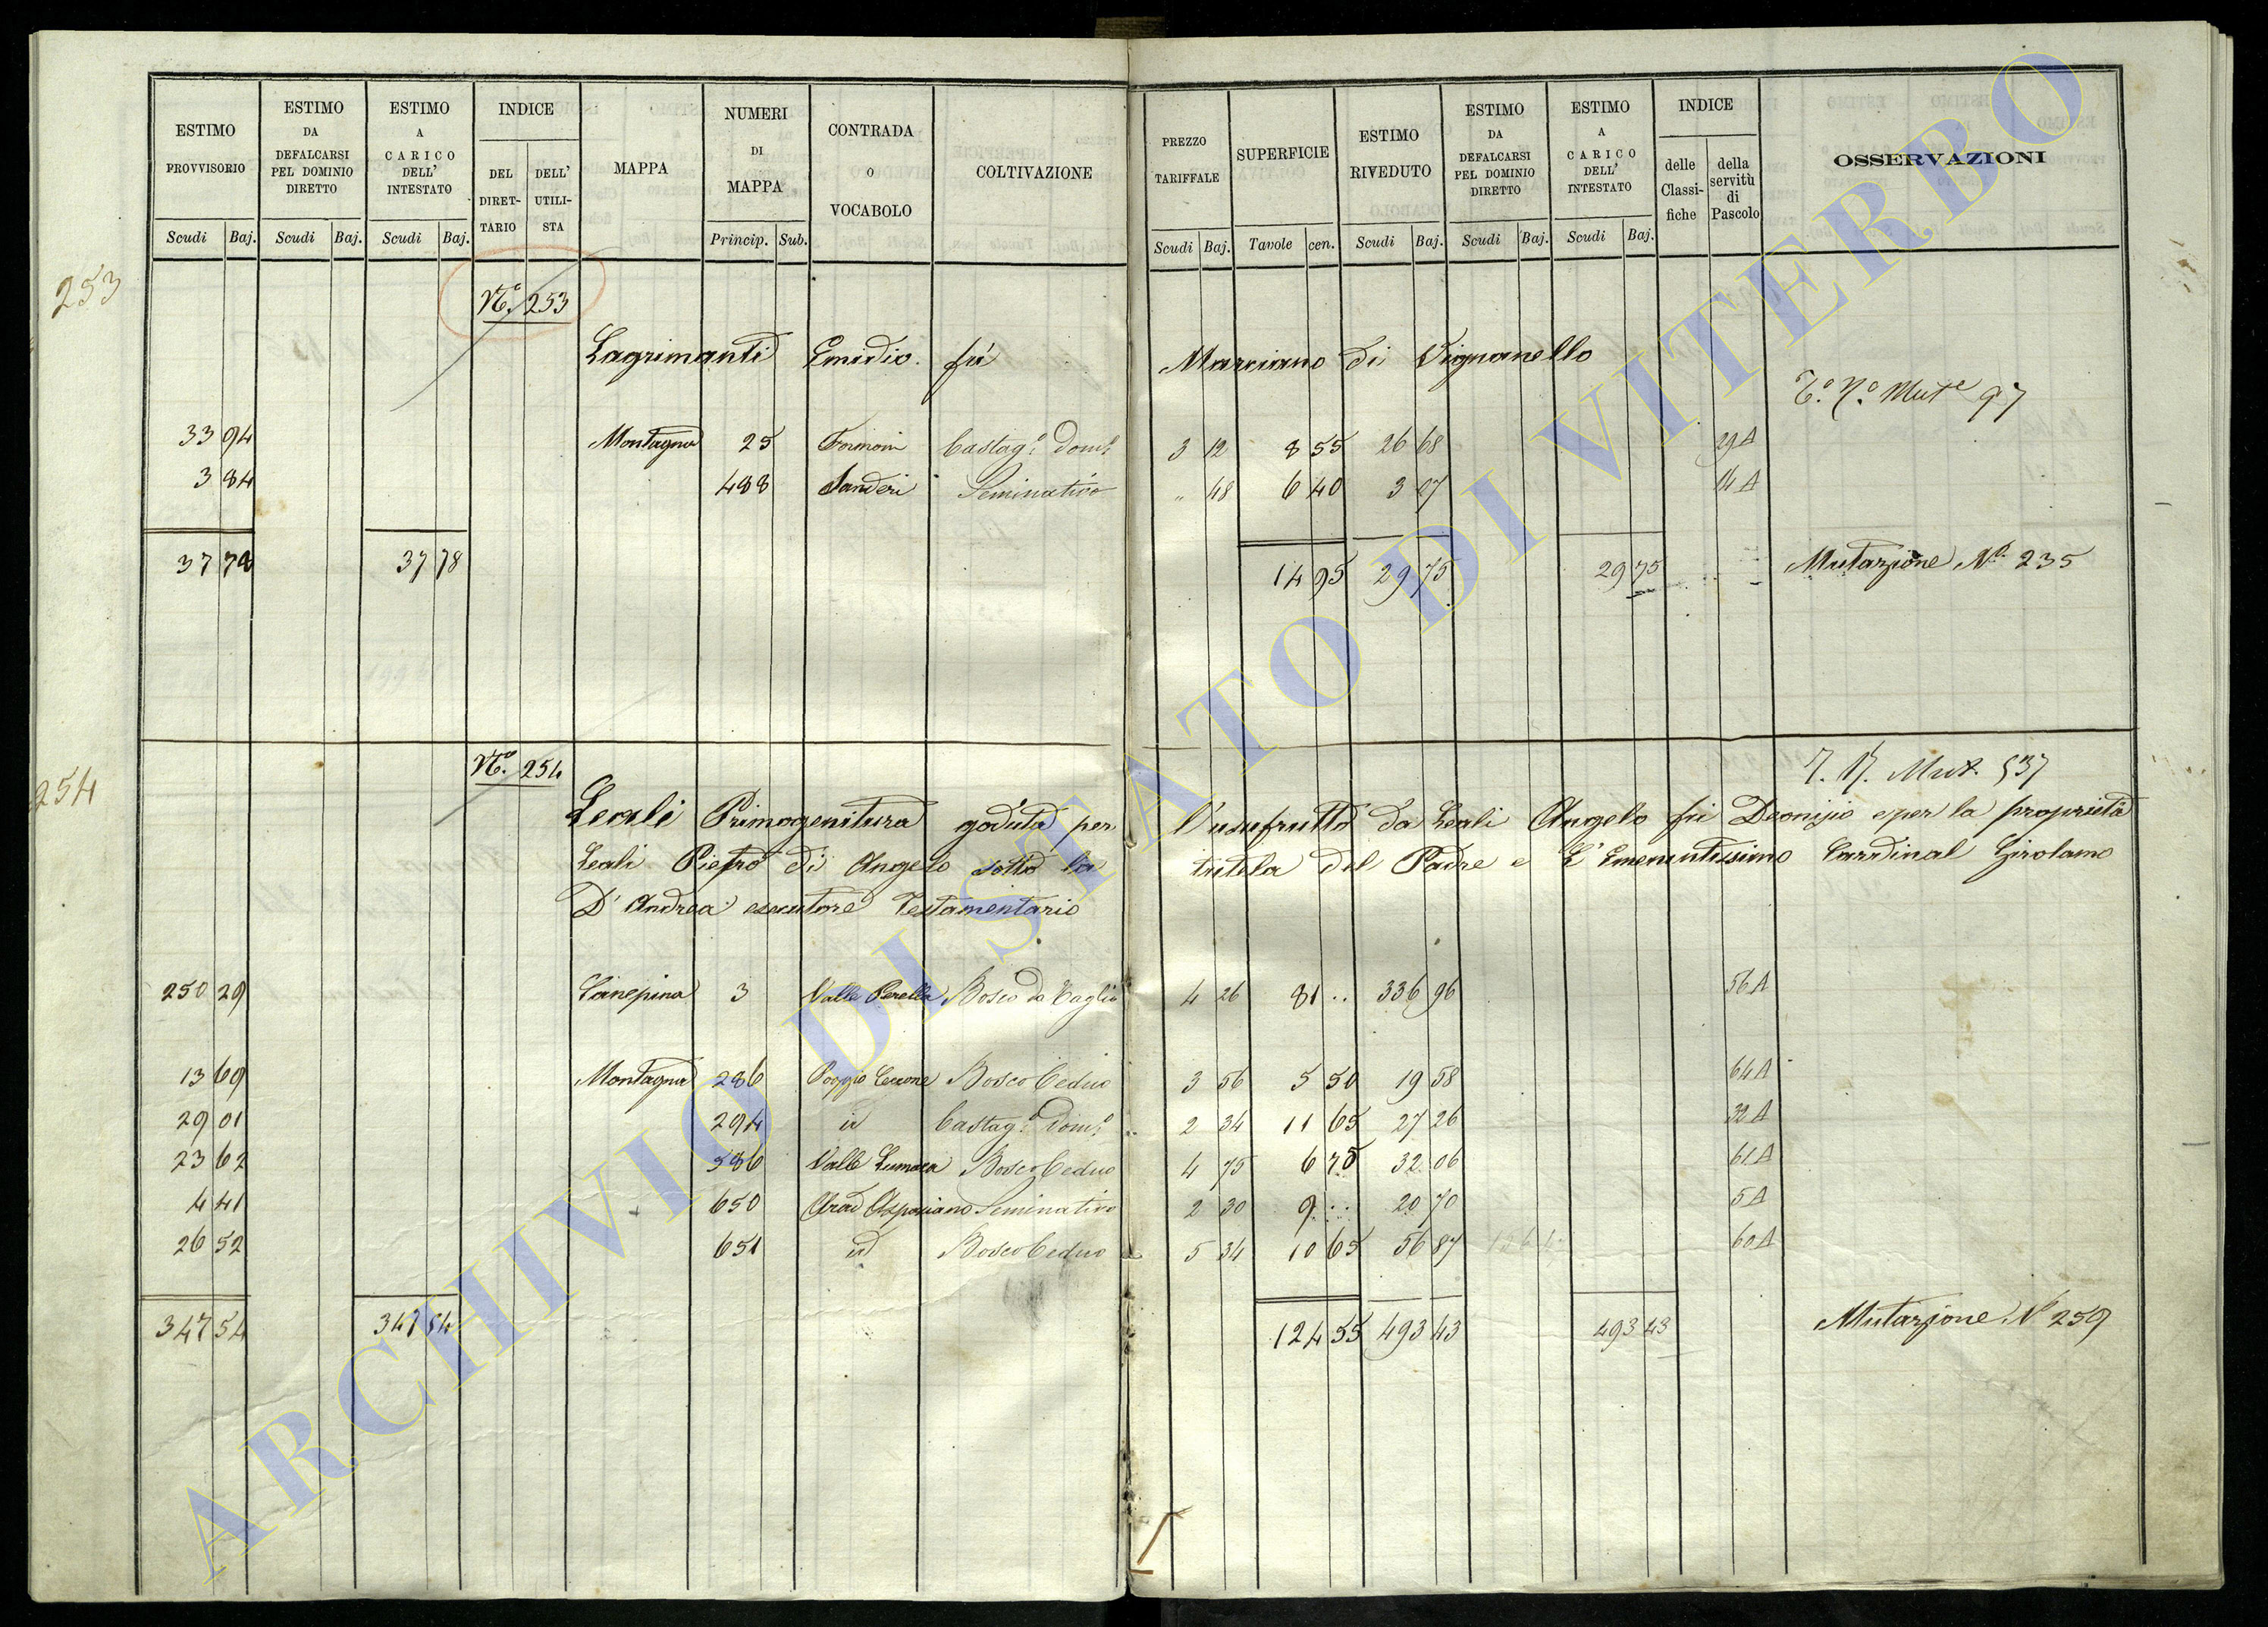 ESTIMO PROVVISORIO | ESTIMO DA DEFALCARSI PEL DOMINIO DIRETTO | ESTIMO A CARICO DELL' INTESTATO | INDICE DEL DIRET-TARIO | DELL' UTILI-STA | MAPPA | NUMERI DI MAPPA | CONTRADA O VOCABOLO | COLTIVAZIONE | PREZZO TARIFFALE | SUPERFICIE | ESTIMO RIVEDUTO | ESTIMO DA DEFALCARSI PEL DOMINIO DIRETTO | ESTIMO A CARICO DELL' INTESTATO | INDICE delle Classi-fiche | della servitù di Pascolo | OSSERVAZIONI
Scudi Baj. Scudi Baj. Scudi Baj. Princip. Sub. Scudi Baj. Tavole cen. Scudi Baj. Scudi Baj. Scudi Baj.
253
N.° 253
Lagrimanti Emidio fù Marciano di Vignanello
T.° N.° Mut.e 97
33 94 Montagna 25 Castag.° Dom.° 3 12 8 55 26 68 29 A
3 84 488 Sanderi Seminativo " 48 6 40 3 07 14 A
37 78 37 78 14 95 29 75 29 75 Mutazione N.° 235
254
N.° 254
Mut. 537
Leali Primogenitura goduta per l'usufrutto da Leali Angelo fù Deonizio e per la proprietà
Leali Pietro di Angelo sotto la tutela del Padre e L'Emenentissimo Cardinal Girolamo
D'Andrea esecutore Testamentario
250 29 Canepina 3 Valle Perella Bosco da Taglio 4 26 81 .. 336 96 56 A
13 69 Montagna 286 Poggio Cerrone Bosco Ceduo 3 56 5 50 19 58 64 A
29 01 294 id Castag.° Dom.° 2 34 11 65 27 26 32 A
23 62 586 Valle Lumaca Bosco Ceduo 4 75 6 75 32 06 61 A
4 41 650 Seminativo 2 30 9 .. 20 70 5 A
26 52 651 id Bosco Ceduo 5 34 10 65 56 87 60 A
347 54 347 54 124 55 493 43 493 43 Mutazione N° 259
ARCHIVIO DI STATO DI VITERBO